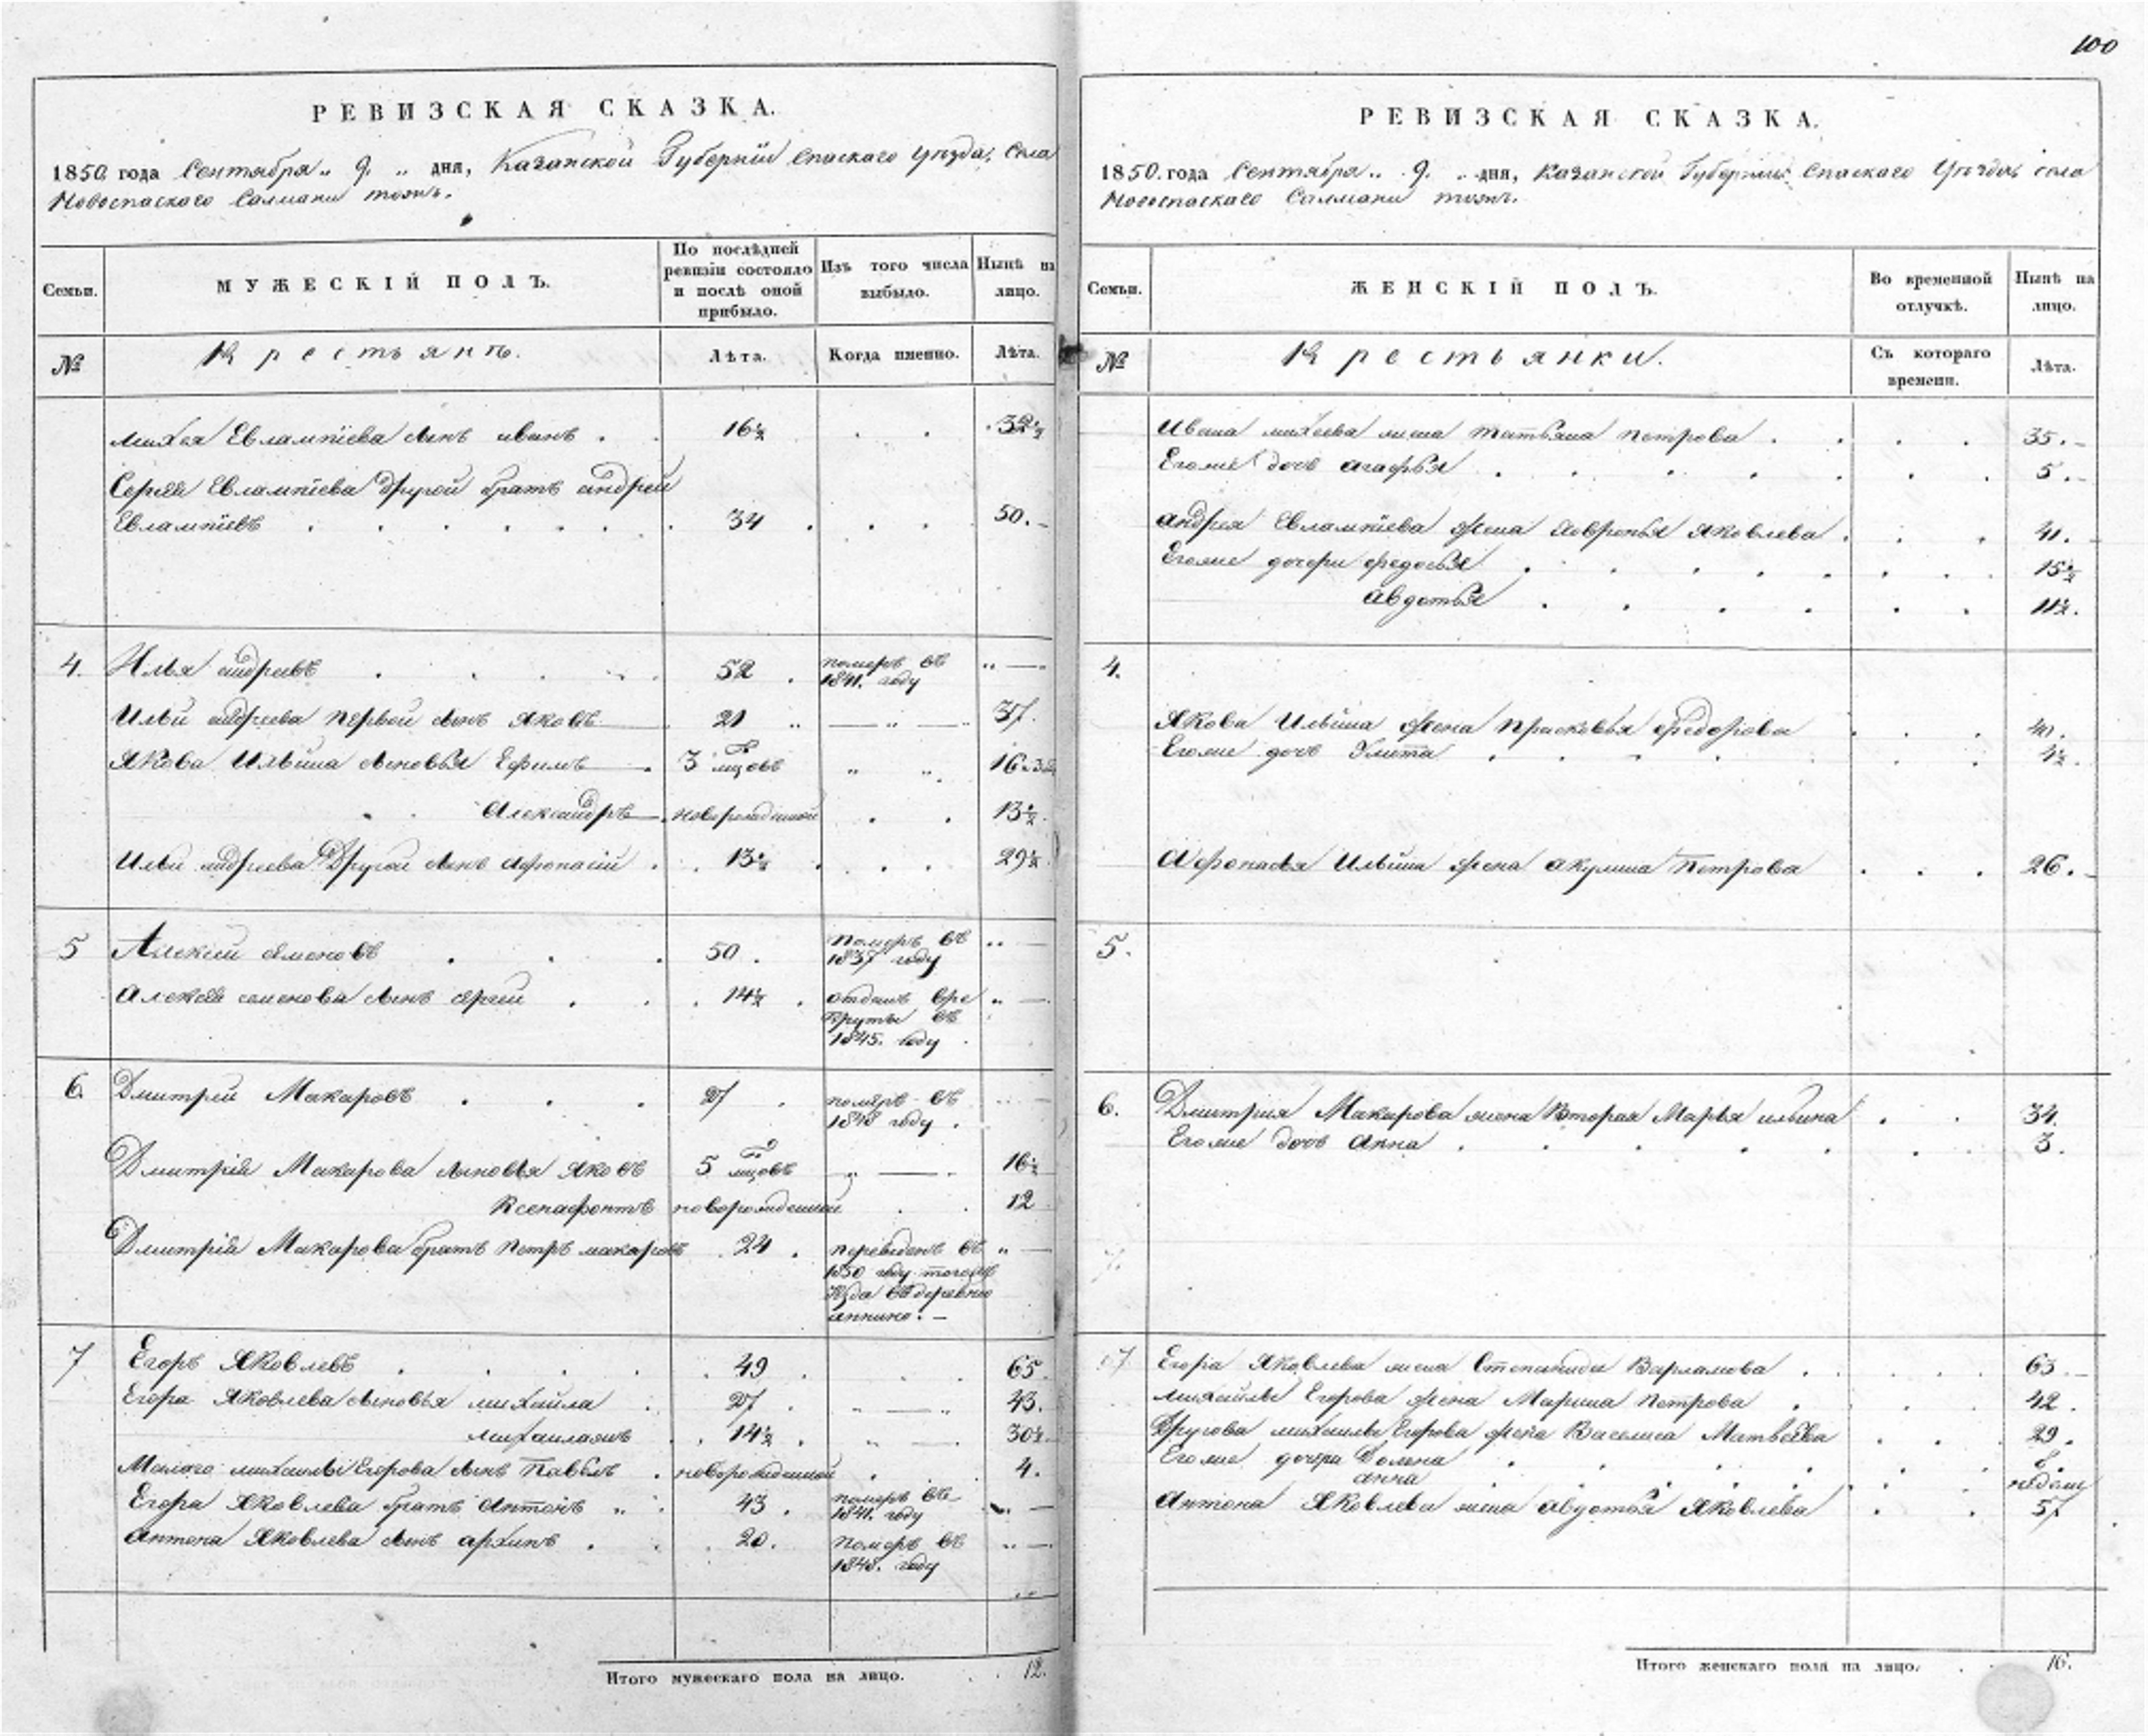 100
РЕВИЗСКАЯ СКАЗКА.
1850 года Сентября „ 9. „ дня, Казанской Губернии Спаскаго Уезда, Села
Новоспаскаго Салмани тожъ.
Семьи.
МУЖЕСКІЙ ПОЛЪ.
По послѣдней ревизіи состояло и послѣ оной прибыло.
Изъ того числа выбыло.
Нынѣ на лицо.
№
Крестьянъ.
Лѣта.
Когда именно.
Лѣта.
Михея Евлампіева сынъ иванъ . 16½ . . 32½
Сергея Евлампіева другой братъ андрей
Евлампіевъ 34 . . 50.
4. Илья андреевъ 52 померъ въ 1841. году „ —
Ильи андреева первой сынъ яковъ 21 „ — „ — 37.
Якова Ильина сыновья Ефимъ 3 мцовъ „ „ 16
Александръ новорожденной . . 13½
Ильи андреева Другой сынъ афонасій 13½ . . 29½
5 Алексей семеновъ 50 . Померъ въ 1837 году „ —
Алексея семенова сынъ сергей 14½ . отданъ вре крути въ 1845. году „ —
6. Дмитрей Макаровъ 27 . померъ въ 1848 году .
Дмитрія Макарова сыновья яковъ 5 мцовъ „ — 16½
Ксенафонтъ новорожденный . . 12
Дмитрія Макарова братъ петръ макаровъ 24 . переведенъ въ 1850 году тогожъ уезда въ деревню аннино. — „ —
7 Егоръ Яковлевъ 49 . . 65
Егора Яковлева сыновья михайла 27 . „ — „ 43.
Михайлажъ 14½ . „ — 30½
Малаго михайлы Егорова сынъ Павелъ . новорожденной . . 4.
Егора Яковлева братъ антонъ „ 43 . померъ въ 1841. году „ —
Антона Яковлева сынъ архипъ . 20. Померъ въ 1848. году „ —
Итого мужескаго пола на лицо. 12.
РЕВИЗСКАЯ СКАЗКА.
1850. года Сентября „ 9. „ дня, Казанской Губернии Спаскаго Уезда, села
Новоспаскаго Салмани тожъ.
Семьи.
ЖЕНСКІЙ ПОЛЪ.
Во временной отлучкѣ.
Нынѣ на лицо.
№
Крестьянки.
Съ котораго времени.
Лѣта.
Ивана михеева жена татьяна петрова . . . 35.
Егоже дочь агафья . . . 5.
андрея Евлампіева жена Ховронья яковлева . . 41.
Егоже дочери федосья . . . 15½
авдотья . . . 11½.
4.
Якова Ильина жена прасковья федорова . . 40.
Егоже дочь Улита . . . 4½.
Афонасья Ильина жена акулина Петрова . . . 26.
5.
6. Дмитрия Макарова жена Вторая Марья ильина . . 34.
Егоже дочь анна . . . 3.
7. Егора Яковлева жена Степанида Варламова . . 63.
михайлы Егорова жена Марина Петрова . . 42.
Другова михайлы Егорова жена Василиса Матвеева . . 29.
Егоже дочери Домна . . . 6.
анна . . . недели
Антона Яковлева жена авдотья Яковлева . . 57
Итого женскаго пола на лицо. 16.